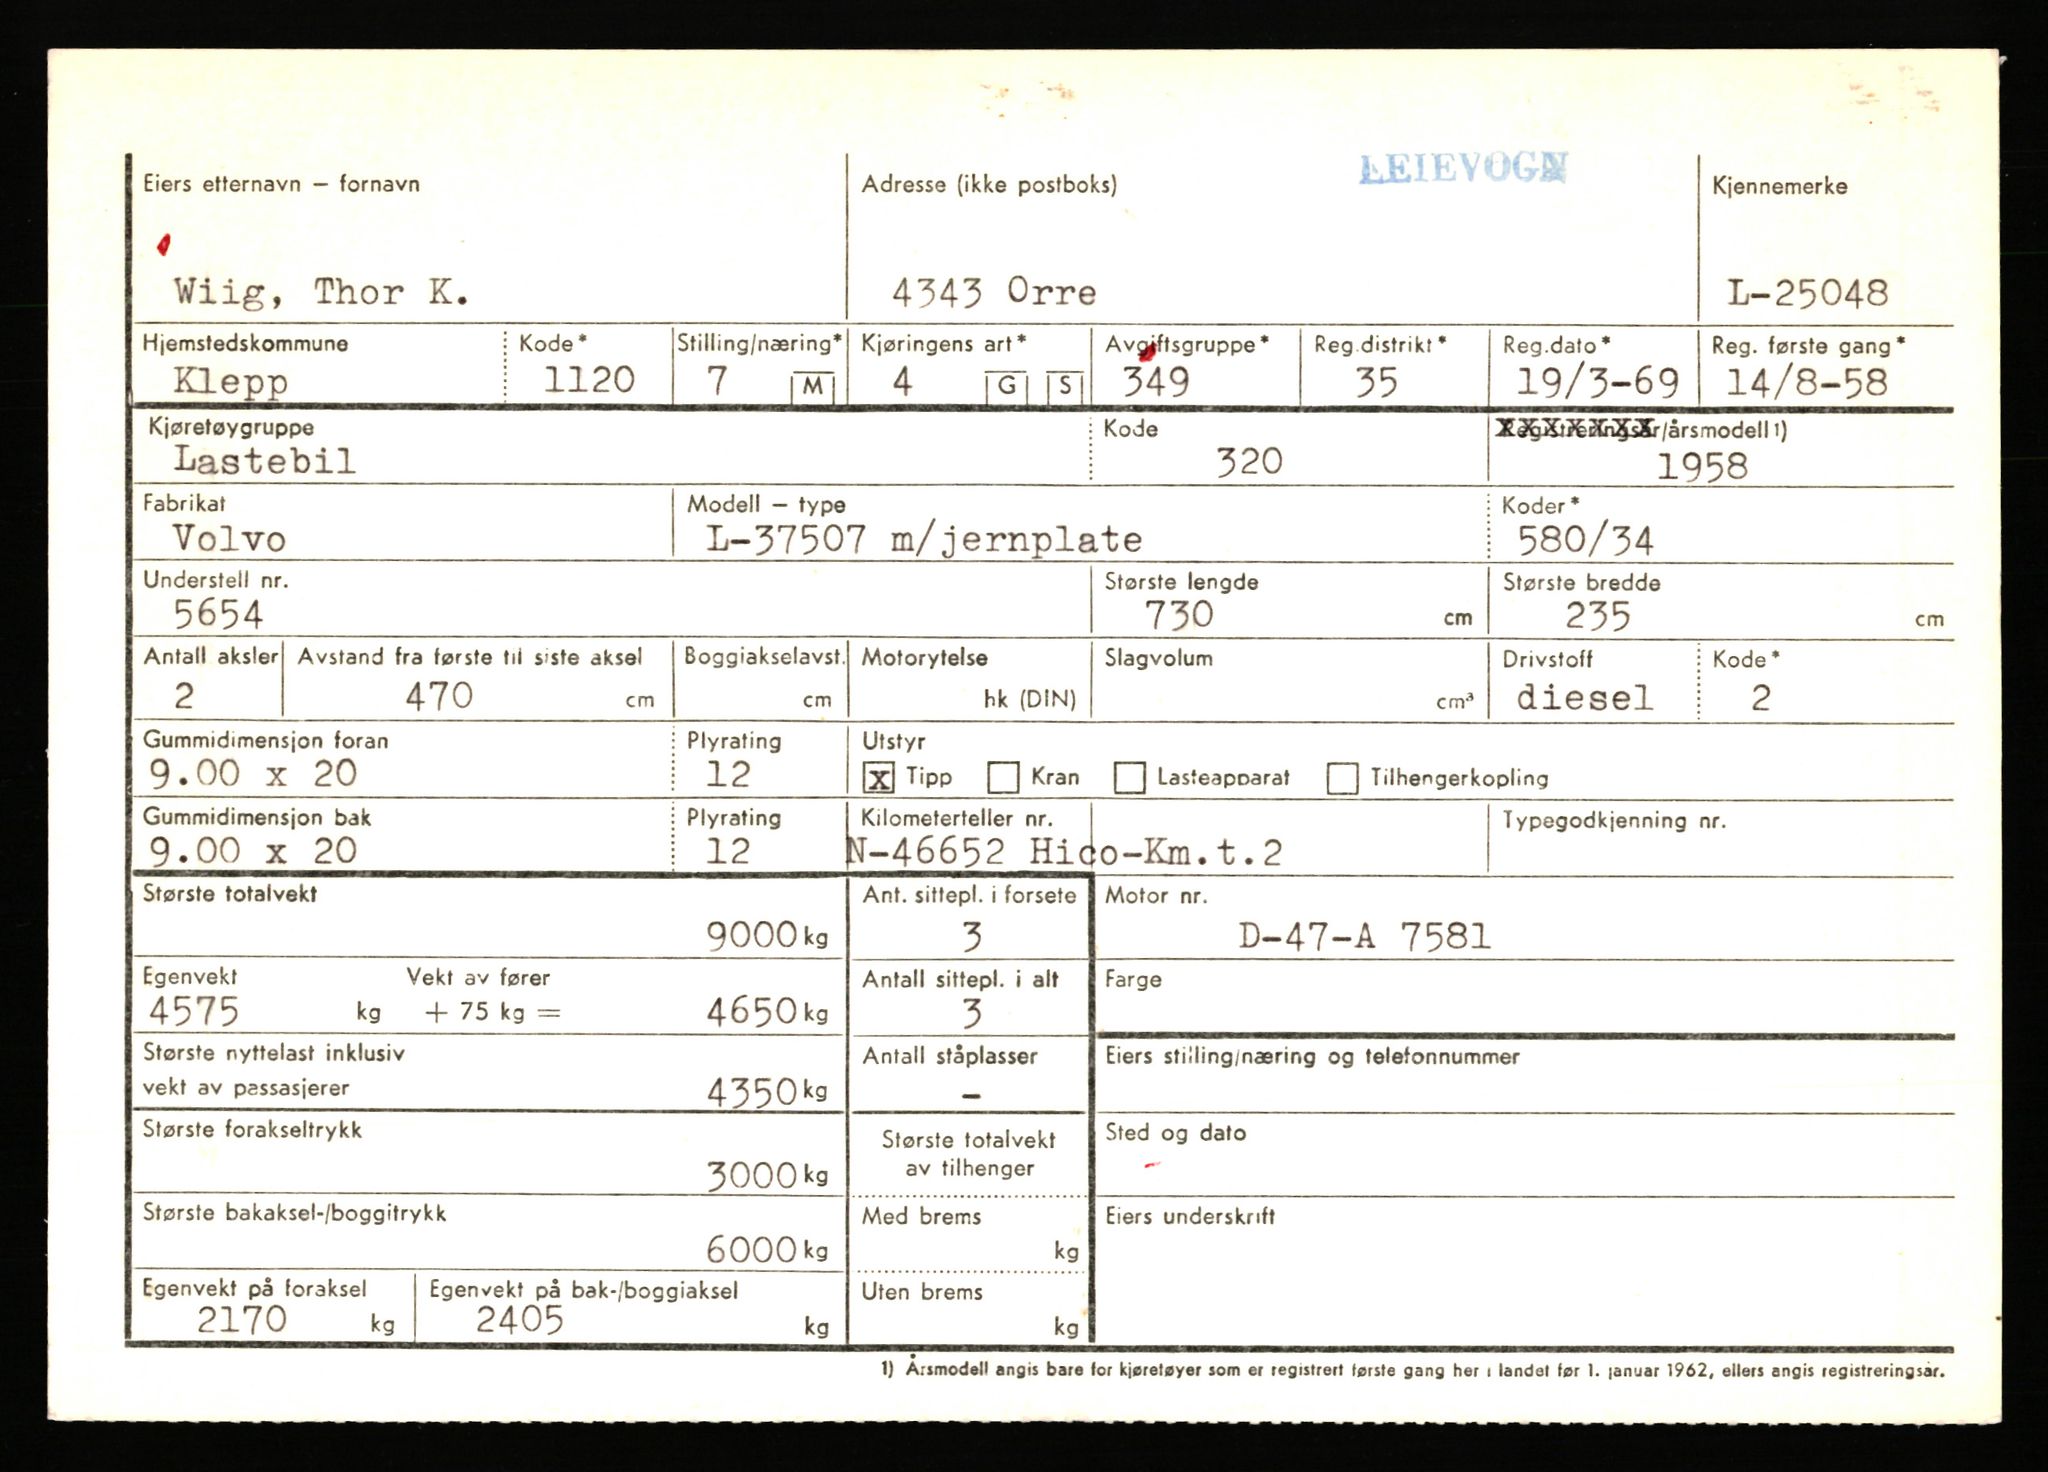 LEIEVOGN
Eiers etternavn – fornavn Adresse (ikke postboks) Kjennemerke
Wiig, Thor K. 4343 Orre L-25048
Hjemstedskommune Kode* Stilling/næring* Kjøringens art* Avgiftsgruppe* Reg.distrikt* Reg.dato* Reg. første gang*
Klepp 1120 7 M 4 G S 349 35 19/3-69 14/8-58
Kjøretøygruppe Kode Registreringsår/årsmodell 1)
Lastebil 320 1958
Fabrikat Modell – type Koder*
Volvo L-37507 m/jernplate 580/34
Understell nr. Største lengde Største bredde
5654 730 cm 235 cm
Antall aksler Avstand fra første til siste aksel Boggiakselavst. Motorytelse Slagvolum Drivstoff Kode*
2 470 cm cm hk (DIN) cm³ diesel 2
Gummidimensjon foran Plyrating Utstyr
9.00 x 20 12 x Tipp Kran Lasteapparat Tilhengerkopling
Gummidimensjon bak Plyrating Kilometerteller nr. Typegodkjenning nr.
9.00 x 20 12 N-46652 Hico-Km.t.2
Største totalvekt Ant. sittepl. i forsete Motor nr.
9000 kg 3 D-47-A 7581
Egenvekt Vekt av fører Antall sittepl. i alt Farge
4575 kg + 75 kg = 4650 kg 3
Største nyttelast inklusiv Antall ståplasser Eiers stilling/næring og telefonnummer
vekt av passasjerer 4350 kg –
Største forakseltrykk Største totalvekt Sted og dato
3000 kg av tilhenger
Største bakaksel-/boggitrykk Med brems Eiers underskrift
6000 kg kg
Egenvekt på foraksel Egenvekt på bak-/boggiaksel Uten brems
2170 kg 2405 kg kg
1) Årsmodell angis bare for kjøretøyer som er registrert første gang her i landet før 1. januar 1962, ellers angis registreringsår.